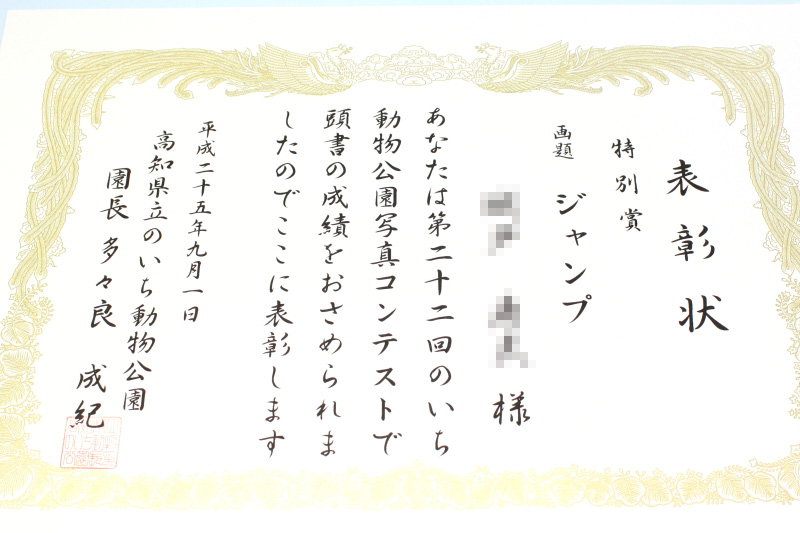 表彰状
特別賞
画題 ジャンプ
様
あなたは第二十二回のいち
動物公園写真コンテストで
頭書の成績をおさめられま
したのでここに表彰します
平成二十五年九月一日
高知県立のいち動物公園
園長 多々良 成紀